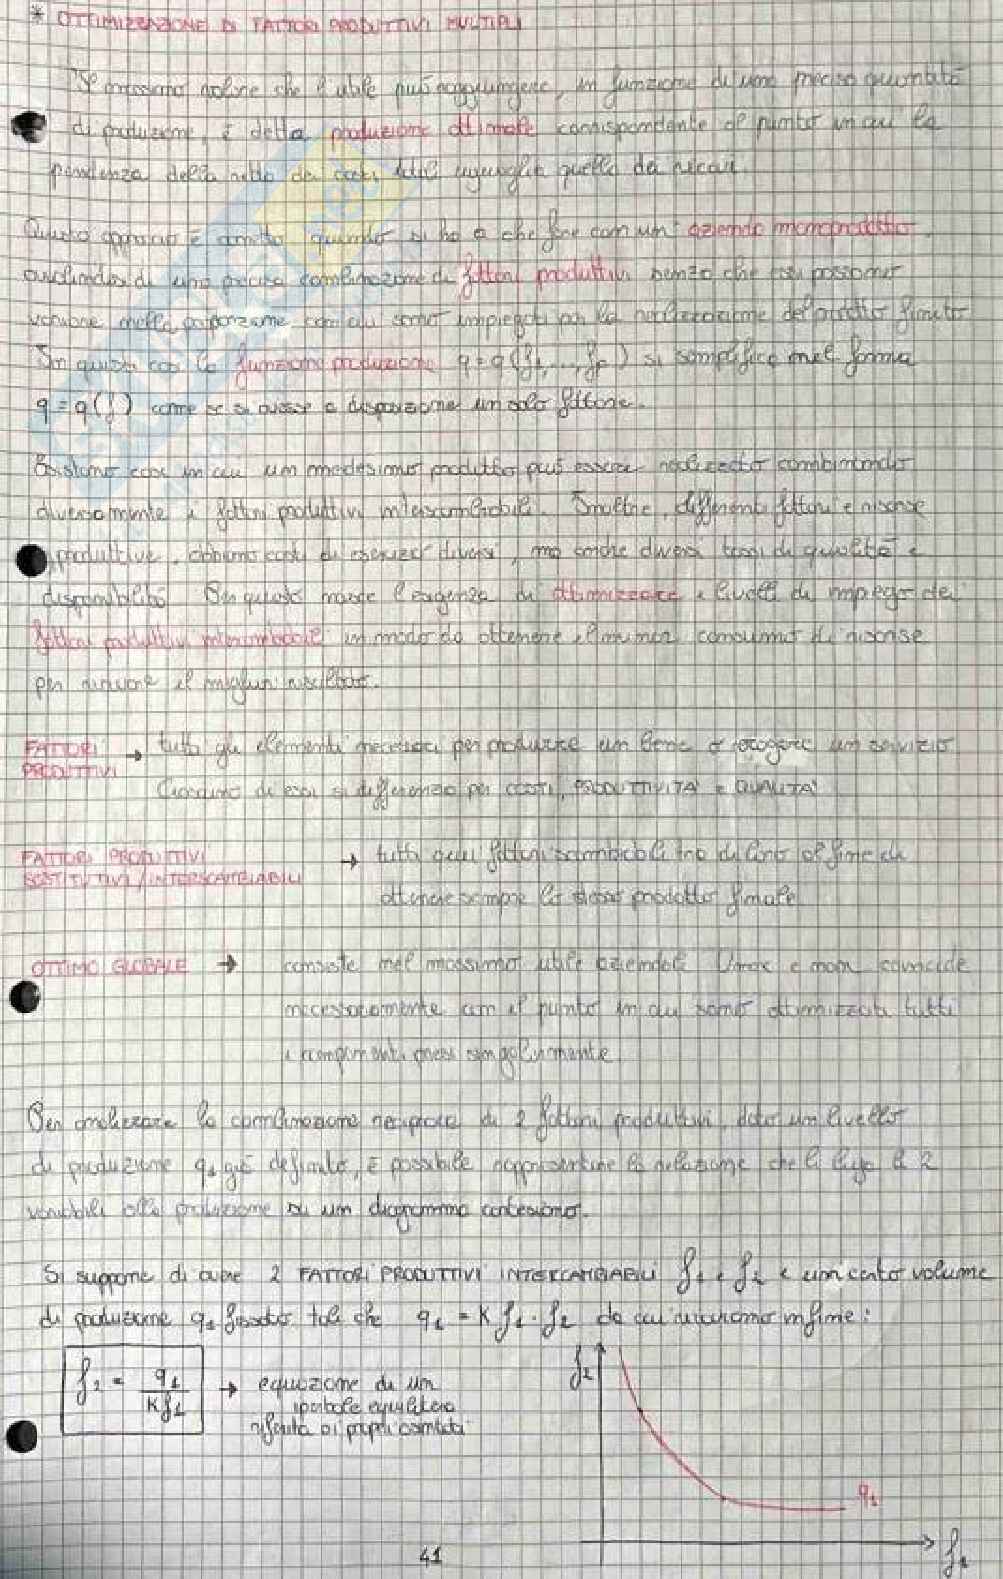 * OTTIMIZZAZIONE DI FATTORI PRODUTTIVI MULTIPLI
Il massimo valore che l'utile può raggiungere, in funzione di una precisa quantità
di produzione, è detta produzione ottimale corrispondente al punto in cui la
pendenza della retta dei costi totali uguaglia quella dei ricavi.
Questo approccio è corretto quando si ha a che fare con un'azienda monoprodotto
avvalendosi di una precisa combinazione di fattori produttivi senza che essi possano
variare nella proporzione con cui sono impiegati per la realizzazione del prodotto finito
In questo caso la funzione produzione q = q(f1,...,fn) si semplifica nel forma
q = q(f) come se si avesse a disposizione un solo fattore.
Esistono casi in cui un medesimo prodotto può essere realizzato combinando
diversamente i fattori produttivi interscambiabili. Inoltre, differenti fattori e risorse
produttive, abbiamo costi di esercizio diversi, ma anche diversi tassi di qualità e
disponibilità Da questo nasce l'esigenza di ottimizzare i livelli di impiego dei
fattori produttivi interscambiabili in modo da ottenere il minor consumo di risorse
per ricavare il miglior risultato.
FATTORI PRODUTTIVI → tutti gli elementi necessari per produrre un bene o erogare un servizio
Ciascuno di essi si differenzia per COSTI, PRODUTTIVITA' e QUALITA'
FATTORI PRODUTTIVI SOSTITUTIVI/INTERSCAMBIABILI → tutti quei fattori scambiabili tra di loro al fine di
ottenere sempre lo stesso prodotto finale
OTTIMO GLOBALE → consiste nel massimo utile aziendale Umax e non coincide
necessariamente con il punto in cui sono ottimizzati tutti
i componenti presi singolarmente
Per analizzare la combinazione reciproca di 2 fattori produttivi, dato un livello
di produzione q1 già definito, è possibile rappresentare la relazione che li lega le 2
variabili alla produzione su un diagramma cartesiano.
Si suppone di avere 2 FATTORI PRODUTTIVI INTERCAMBIABILI f1 e f2 e un certo volume
di produzione q1 fissato tale che q1 = K f1 · f2 da cui ricaviamo infine:
f2 = q1 / K f1 → equazione di un
iperbole equilatera
riferita ai propri asintoti
f2
q1
f1
41